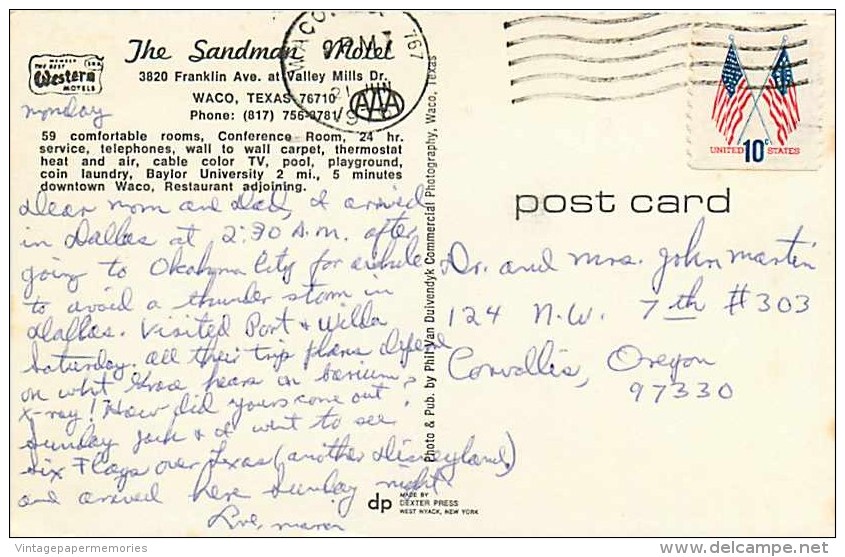 The Sandman Motel
MEMBER
THE BEST
Western
MOTELS
3820 Franklin Ave. at Valley Mills Dr.
WACO, TEXAS 76710
Phone: (817) 756-3781
AAA
WACO
PM
21 JUN
767
59 comfortable rooms, Conference Room, 24 hr.
service, telephones, wall to wall carpet, thermostat
heat and air, cable color TV, pool, playground,
coin laundry, Baylor University 2 mi., 5 minutes
downtown Waco, Restaurant adjoining.
Monday
Dear Mom and Dad, I arrived
in Dallas at 2:30 A.M. after
going to Okahoma City for awhile
to avoid a thunder storm in
Dallas. Visited Port & Willa
Saturday. All their trip plans depend
on what hears on barium
X-ray! How did yours come out?
Sunday Jack & I went to see
Six Flags over Texas (another Disneyland)
and arrived here Sunday night.
Love,
Photo & Pub. by Phil Van Duivendyk Commercial Photography, Waco, Texas
dp
MADE BY
DEXTER PRESS
WEST NYACK, NEW YORK
UNITED 10c STATES
post card
Dr. and Mrs. John Martin
124 N.W. 7th #303
Corvallis, Oregon
97330
Vintagepapermemories
delcampe.net